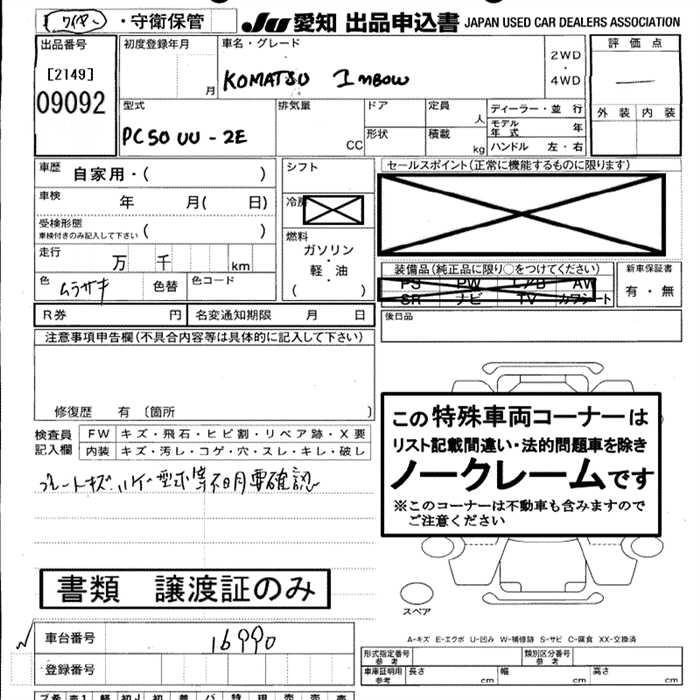 ワイヤー ・守衛保管
JU 愛知 出品申込書 JAPAN USED CAR DEALERS ASSOCIATION
出品番号
[2149]
09092
初度登録年月
月
車名・グレード
KOMATSU
2WD
・
4WD
評価点
外装 内装
型式
PC50UU-2E
排気量
CC
ドア
形状
定員
人
積載
kg
ディーラー・並行
モデル年式 年
ハンドル 左・右
車歴 自家用・( )
車検 年 月( 日)
受検形態
車検付きのみ記入して下さい ( )
走行 万 千 km
色 ムラサキ 色替 色コード
シフト
冷房
燃料
ガソリン
・
軽・油
( )
セールスポイント(正常に機能するものに限ります)
装備品(純正品に限り○をつけてください)
PS PW エアB AW
SR ナビ TV カワシート
新車保証書
有・無
R券 円 名変通知期限 月 日
後日品
注意事項申告欄(不具合内容等は具体的に記入して下さい)
修復歴 有〔箇所 〕
検査員
記入欄
FW キズ・飛石・ヒビ割・リペア跡・X要
内装 キズ・汚レ・コゲ・穴・スレ・キレ・破レ
要確認
この特殊車両コーナーは
リスト記載間違い・法的問題車を除き
ノークレームです
※このコーナーは不動車も含みますので
ご注意ください
書類 譲渡証のみ
スペア
A-キズ E-エクボ U-凹み W-補修跡 S-サビ C-腐食 XX-交換済
車台番号 16990
登録番号
形式指定番号
参考
類別区分番号
参考
車庫証明用
参考
長さ cm 幅 cm 高さ cm